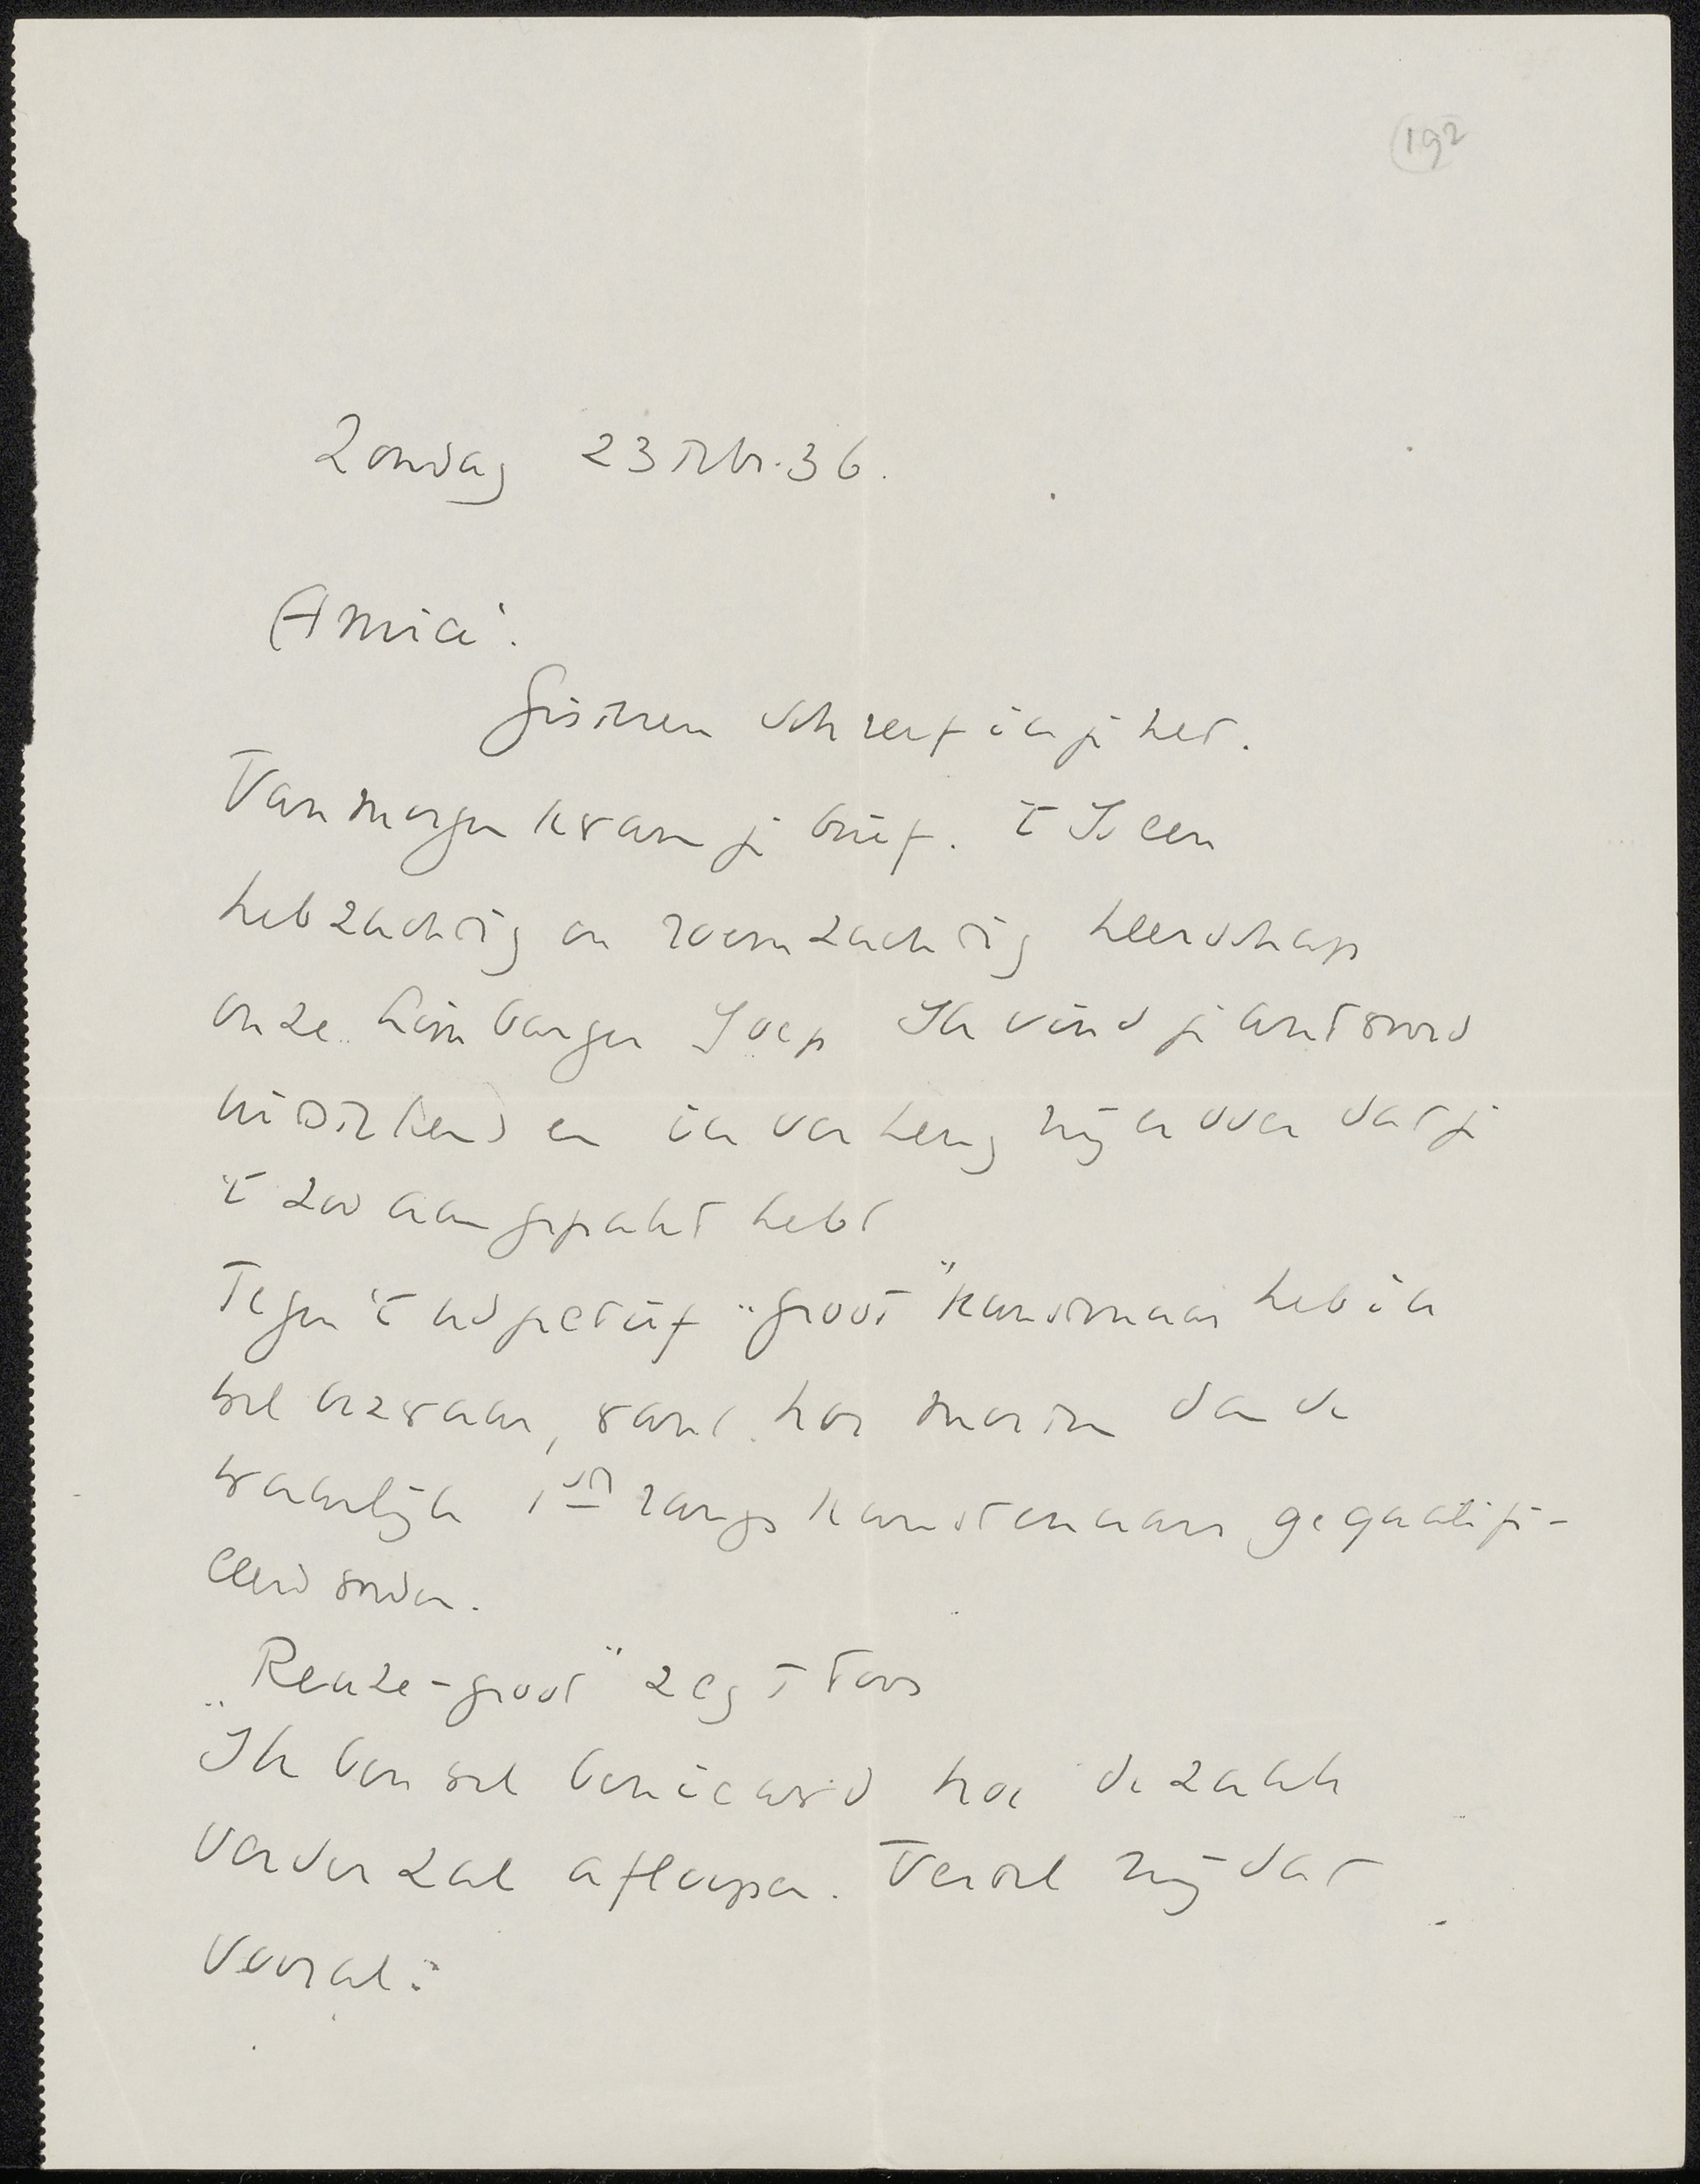 192
Zondag 23 Febr. 36.
Amice.
Gisteren schreef ik je het.
Vanmorgen kwam je brief. 't Is een
hebzuchtig en roemzuchtig heerschap
onze Limburger Joep Ik vind je antwoord
uitstekend en ik verheug mij er over dat je
't zoo aangepakt hebt
Tegen 't adjectief „groot" kunstenaar heb ik
wel bezwaar, want hoe moeten dan de
waarlijk 1ste rangs kunstenaars gequalifi-
ceerd worden.
„Reuze-groot" zegt Toos
Ik ben wel benieuwd hoe de zaak
verder zal afloopen. Vertel mij dat
vooral.